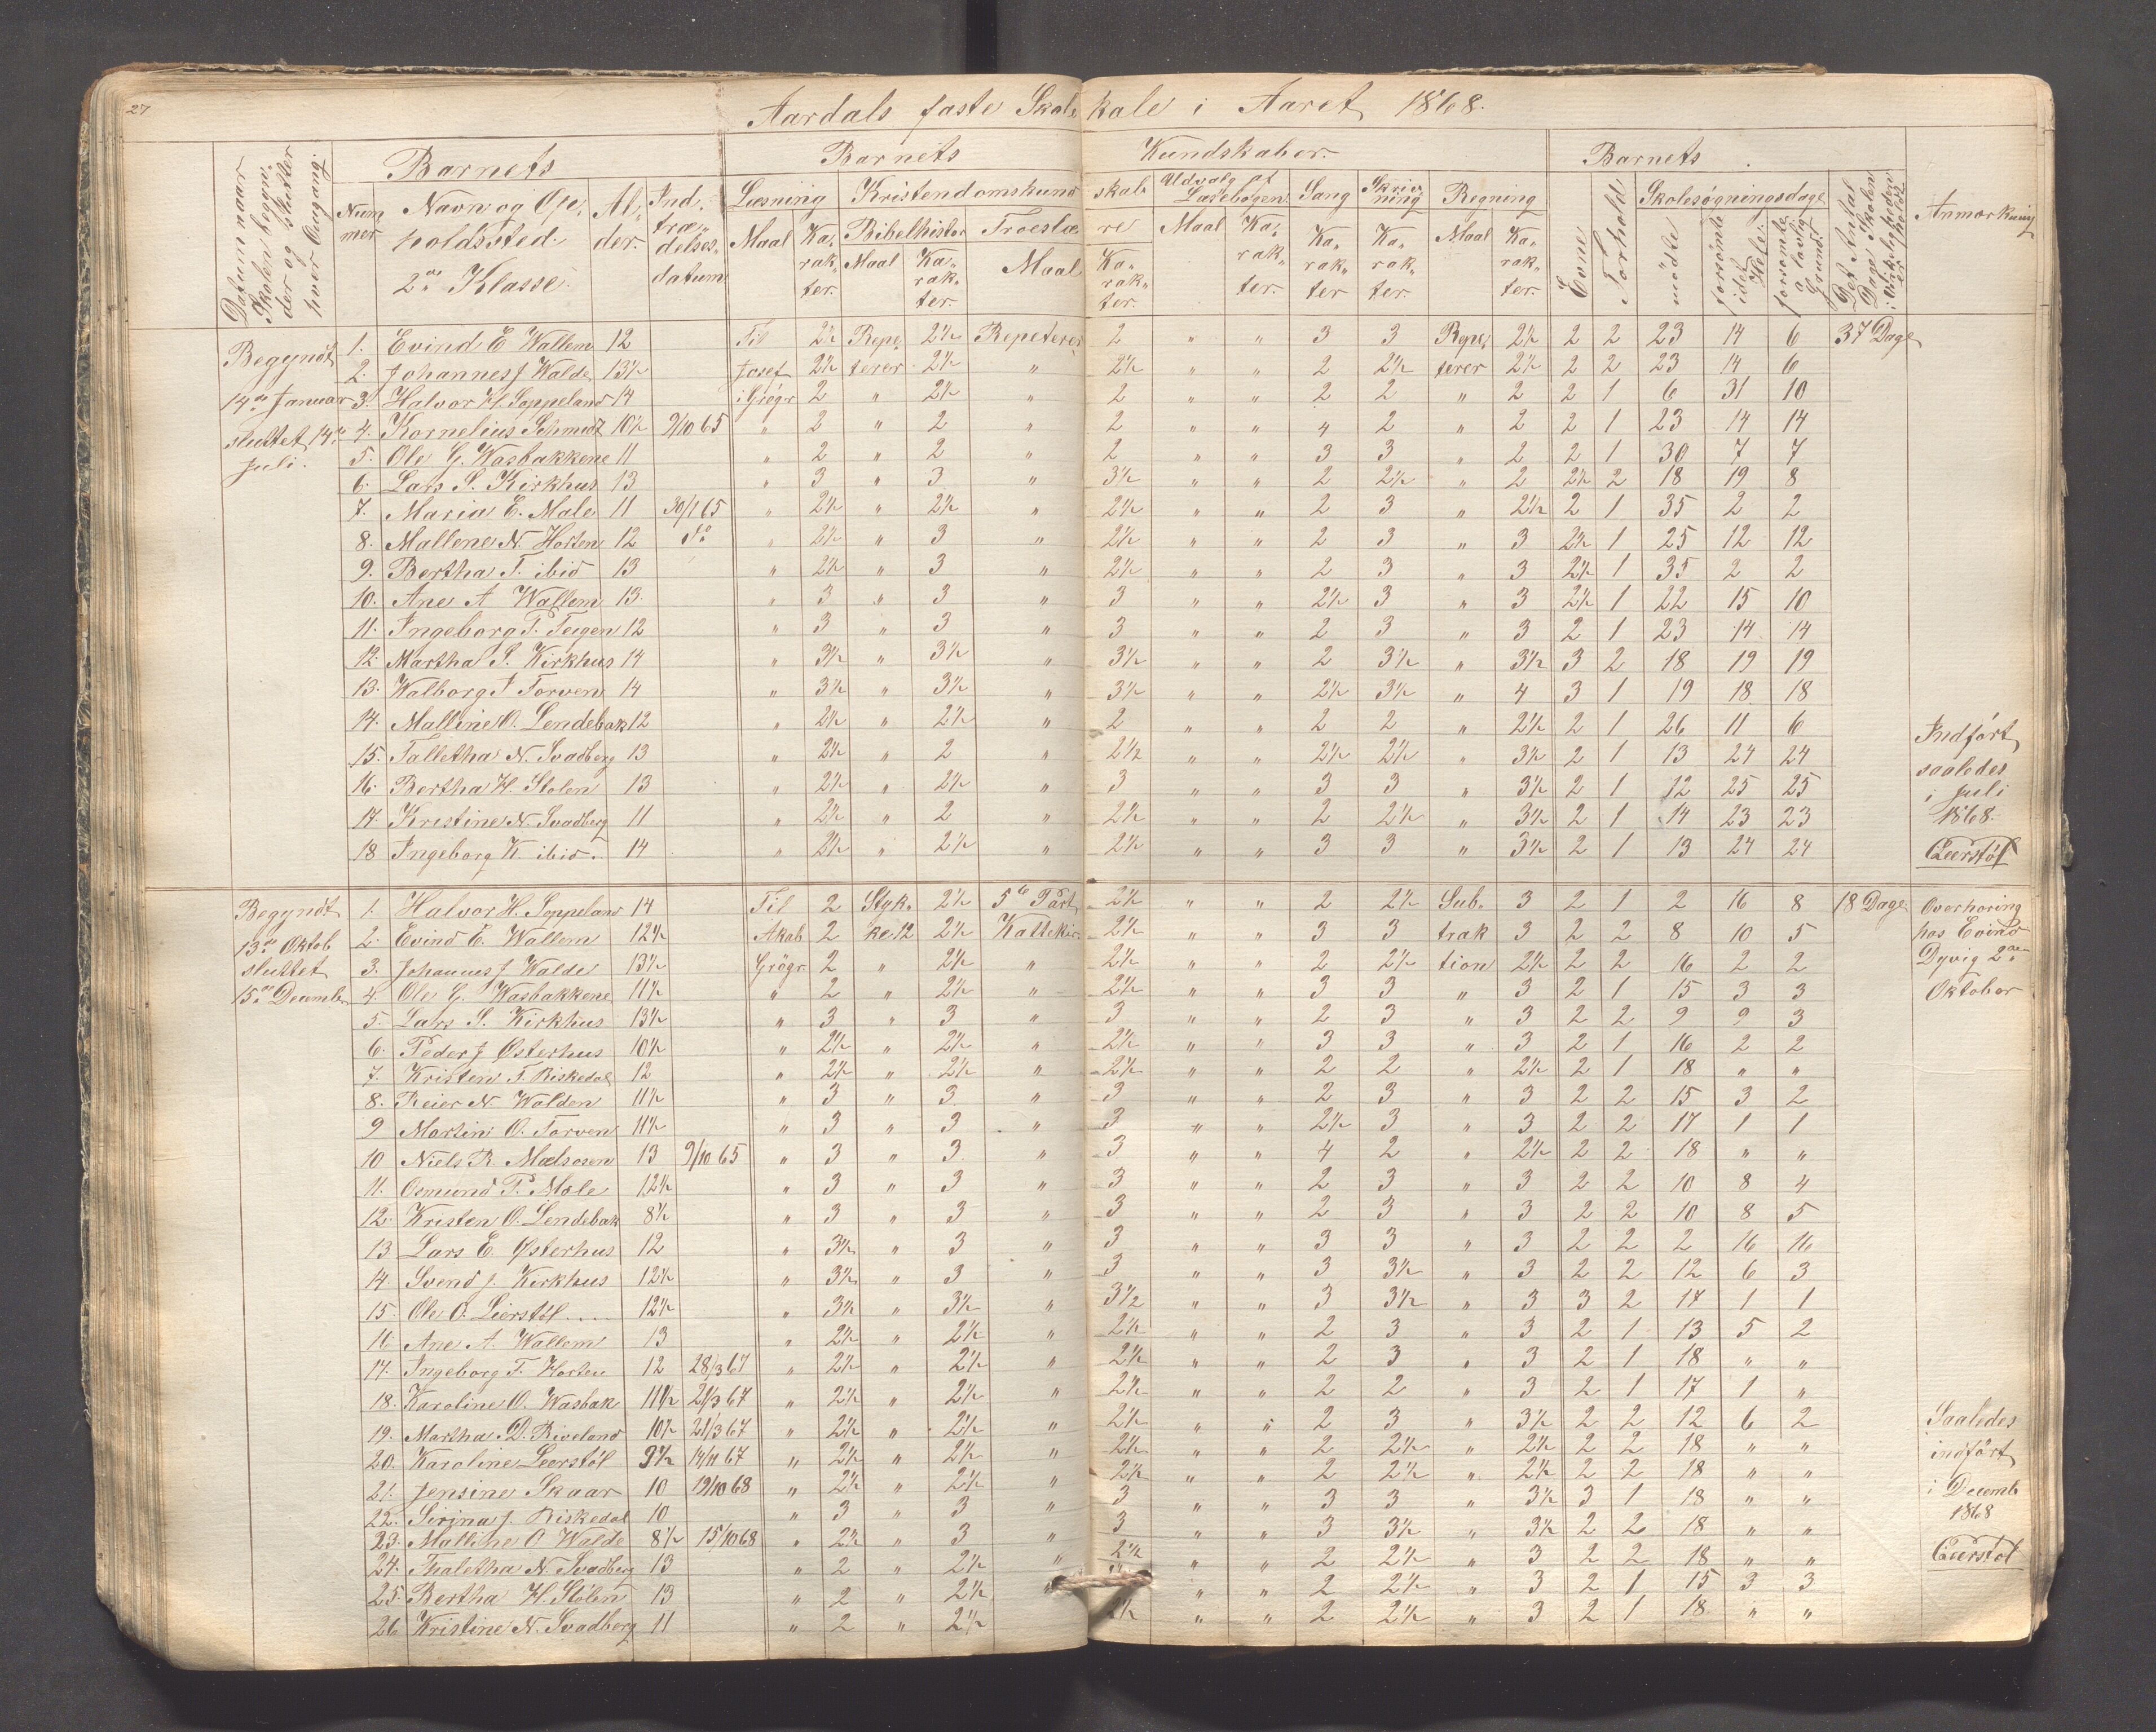 27
Aardals faste Skole kole i Aaret 1868.
Datum naar Skolen begyn- der og slutter hver Omgang.
Barnets
Num mer
Navn og Op- holdssted. 2den Klasse.
Al- der.
Ind- træ- delses- datum
Barnets Kundskaber.
Læsning Maal Ka- rak- ter.
Kristendomskund skab
Bibelhistor Maal Ka- rak- ter.
Troeslæ re Maal Ka- rak- ter.
Udvalg af Læsebogen Maal Ka- rak- ter.
Sang Ka- rak- ter
Skriv- ning Ka- rak- ter.
Regning Maal Ka- rak- ter.
Barnets
Evne Forhold
Skolesøgningsdage
mödte forsömte i det Hele. forsömte a lovlig Grund.
Det Antal Dage Skolen i Virkeligheden er holdt
Anmærkning
Begyndt 14de Januar sluttet 14de Juli.
1. Evind E Wallem 12 Til 2½ Repe- 2½ Repeterer 2 " " 3 3 Repe- 2½ 2 2 23 14 6 37 Dage
2. Johannes J Walde 13½ Josef 2½ terer 2½ " 2½ " " 2 2½ terer 2½ 2 2 23 14 6
3. Halvor H. Soppeland 14 i Grögr 2 " 2½ " 2 " " 2 2 " 2 2 1 6 31 10
4. Kornelius Schmidt 10½ 9/10 65 " 2 " 2 " 2 " " 4 2 " 2 2 1 23 14 14
5. Ole G. Wasbakkene 11 " 2 " 2 " 2 " " 3 3 " 2 2 1 30 7 7
6. Lars S. Kirkhus 13 " 3 " 3 " 3½ " " 2 2½ " 2 2½ 2 18 19 8
7. Maria E. Male 11 30/1 65 " 2½ " 2½ " 2½ " " 2 3 " 2½ 2 1 35 2 2
8. Mallene N. Horten 12 do " 2½ " 3 " 2½ " " 2 3 " 3 2½ 1 25 12 12
9. Bertha T. ibid 13 " 2½ " 3 " 2½ " " 2 3 " 3 2½ 1 35 2 2
10. Ane A Wallem 13. " 3 " 3 " 3 " " 2½ 3 " 3 2½ 1 22 15 10
11. Ingeborg T. Teigen 12 " 3 " 3 " 3 " " 2 3 " 3 2 1 23 14 14
12. Martha S. Kirkhus 14 " 3½ " 3½ " 3½ " " 2 3½ " 3½ 3 2 18 19 19
13. Walborg J Torven 14 " 3½ " 3½ " 3½ " " 2½ 3½ " 4 3 1 19 18 18
14. Malline O. Lendebak 12 " 2½ " 2½ " 2 " " 2 2 " 2½ 2 1 26 11 6
15. Talletha N. Svadberg 13 " 2½ " 2 " 2½ " " 2½ 2½ " 3½ 2 1 13 24 24
16. Bertha H. Stolen 13 " 2½ " 2½ " 3 " " 3 3 " 3½ 2 1 12 25 25
17. Kristine N. Svadberg 11 " 2½ " 2 " 2½ " " 2 2½ " 3½ 2 1 14 23 23
18 Ingeborg K. ibid. 14 " 2½ " 2½ " 2½ " " 3 3 " 3½ 2 1 13 24 24
Indført saaledes i Juli 1868.
Leerstöl
Begyndt 13de Oktob sluttet 15de December
1. Halvor H. Soppeland 14 Til 2 Styk- 2½ 5te Part 2½ " " 2 2½ Sub- 3 2 1 2 16 8 18 Dage
2. Evind E. Wallem 12½ Akab 2 ke 12 2½ Kattekis. 2½ " " 3 3 trak 3 2 2 8 10 5
3. Johannes J Walde 13½ Grögr. 2 " 2½ " 2½ " " 2 2½ tion 2½ 2 2 16 2 2
4. Ole G. Wasbakkene 11½ " 2 " 2½ " 2½ " " 3 3 " 3 2 1 15 3 3
5. Lars S. Kirkhus 13½ " 3 " 3 " 3 " " 2 3 " 3 2 2 9 9 3
6. Peder J Osterhus 10½ " 2½ " 2½ " 2½ " " 3 3 " 3 2 1 16 2 2
7. Kristen T. Riskedal 12 " 2½ " 2½ " 2½ " " 2 2 " 2½ 2 1 18 " "
8. Reier N. Walden 11½ " 3 " 3 " 3 " " 2 3 " 3 2 2 15 3 2
9 Martin O. Torven 11½ " 3 " 3 " 3 " " 2½ 3 " 3 2 2 17 1 1
10 Niels R. Mælsosen 13 9/10 65 " 3 " 3 " 3 " " 4 2 " 2½ 2 2 18 " "
11. Osmund P. Mole 12½ " 3 " 3 " 3 " " 2 3 " 3 2 2 10 8 4
12. Kristen O. Lendebak 8½ " 3 " 3 " 3 " " 2 3 " 3 2 2 10 8 5
13 Lars E. Østerhus 12 " 3½ " 3 " 3 " " 3 3 " 3 2 2 2 16 16
14. Svend J. Kirkhus 12½ " 3½ " 3 " 3 " " 3 3½ " 3 2 2 12 6 3
15. Ole O. Leerstöl 12½ " 3½ " 3½ " 3½ " " 3 3½ " 3 3 2 17 1 1
16 Ane A. Wallem 13 " 2½ " 2½ " 2½ " " 2 3 " 3 2 1 13 5 2
17. Ingeborg T. Horten 12 28/3 67 " 2½ " 2½ " 2½ " " 2 3 " 3 2 1 18 " "
18. Karoline O. Wasbak 11½ 21/3 67 " 2½ " 2½ " 2½ " " 2 2 " 3 2 1 17 1 "
19. Martha D. Riveland 10½ 21/3 67 " 2½ " 2½ " 2½ " " 2 3 " 3½ 2 2 12 6 2
20. Karoline Leerstöl 9½ 14/11 67 " 2½ " 2½ " 2½ " " 2 2½ " 2½ 2 2 18 " "
21. Jensine Skaar 10 19/10 68 " 2½ " 2½ " 2½ " " 2 2½ " 2½ 2 2 18 " "
22. Sirina J. Riskedal 10 " 3 " 3 " 3 " " 3 3 " 3½ 3 1 18 " "
23. Malline O Walde 8½ 15/10 68 " 2½ " 3 " 3 " " 3 3½ " 3½ 2 2 18 " "
24. Thaletha N. Svadberg 13 " 2 " 2½ " 2½ " " 2 2½ " 3 2 2 18 " "
25. Bertha H. Stölen 13 " 2 " 2½ " " " 2 2½ " 3 2 1 15 3 3
26 Kristine N. Svadberg 11 " 2 " 2½ 2½ " " 2 2½ " 3 2 1 18 " "
Overhøring hos Evind Dyvig 2den Oktober
Saaledes indført i Decemb 1868
Leerstöl